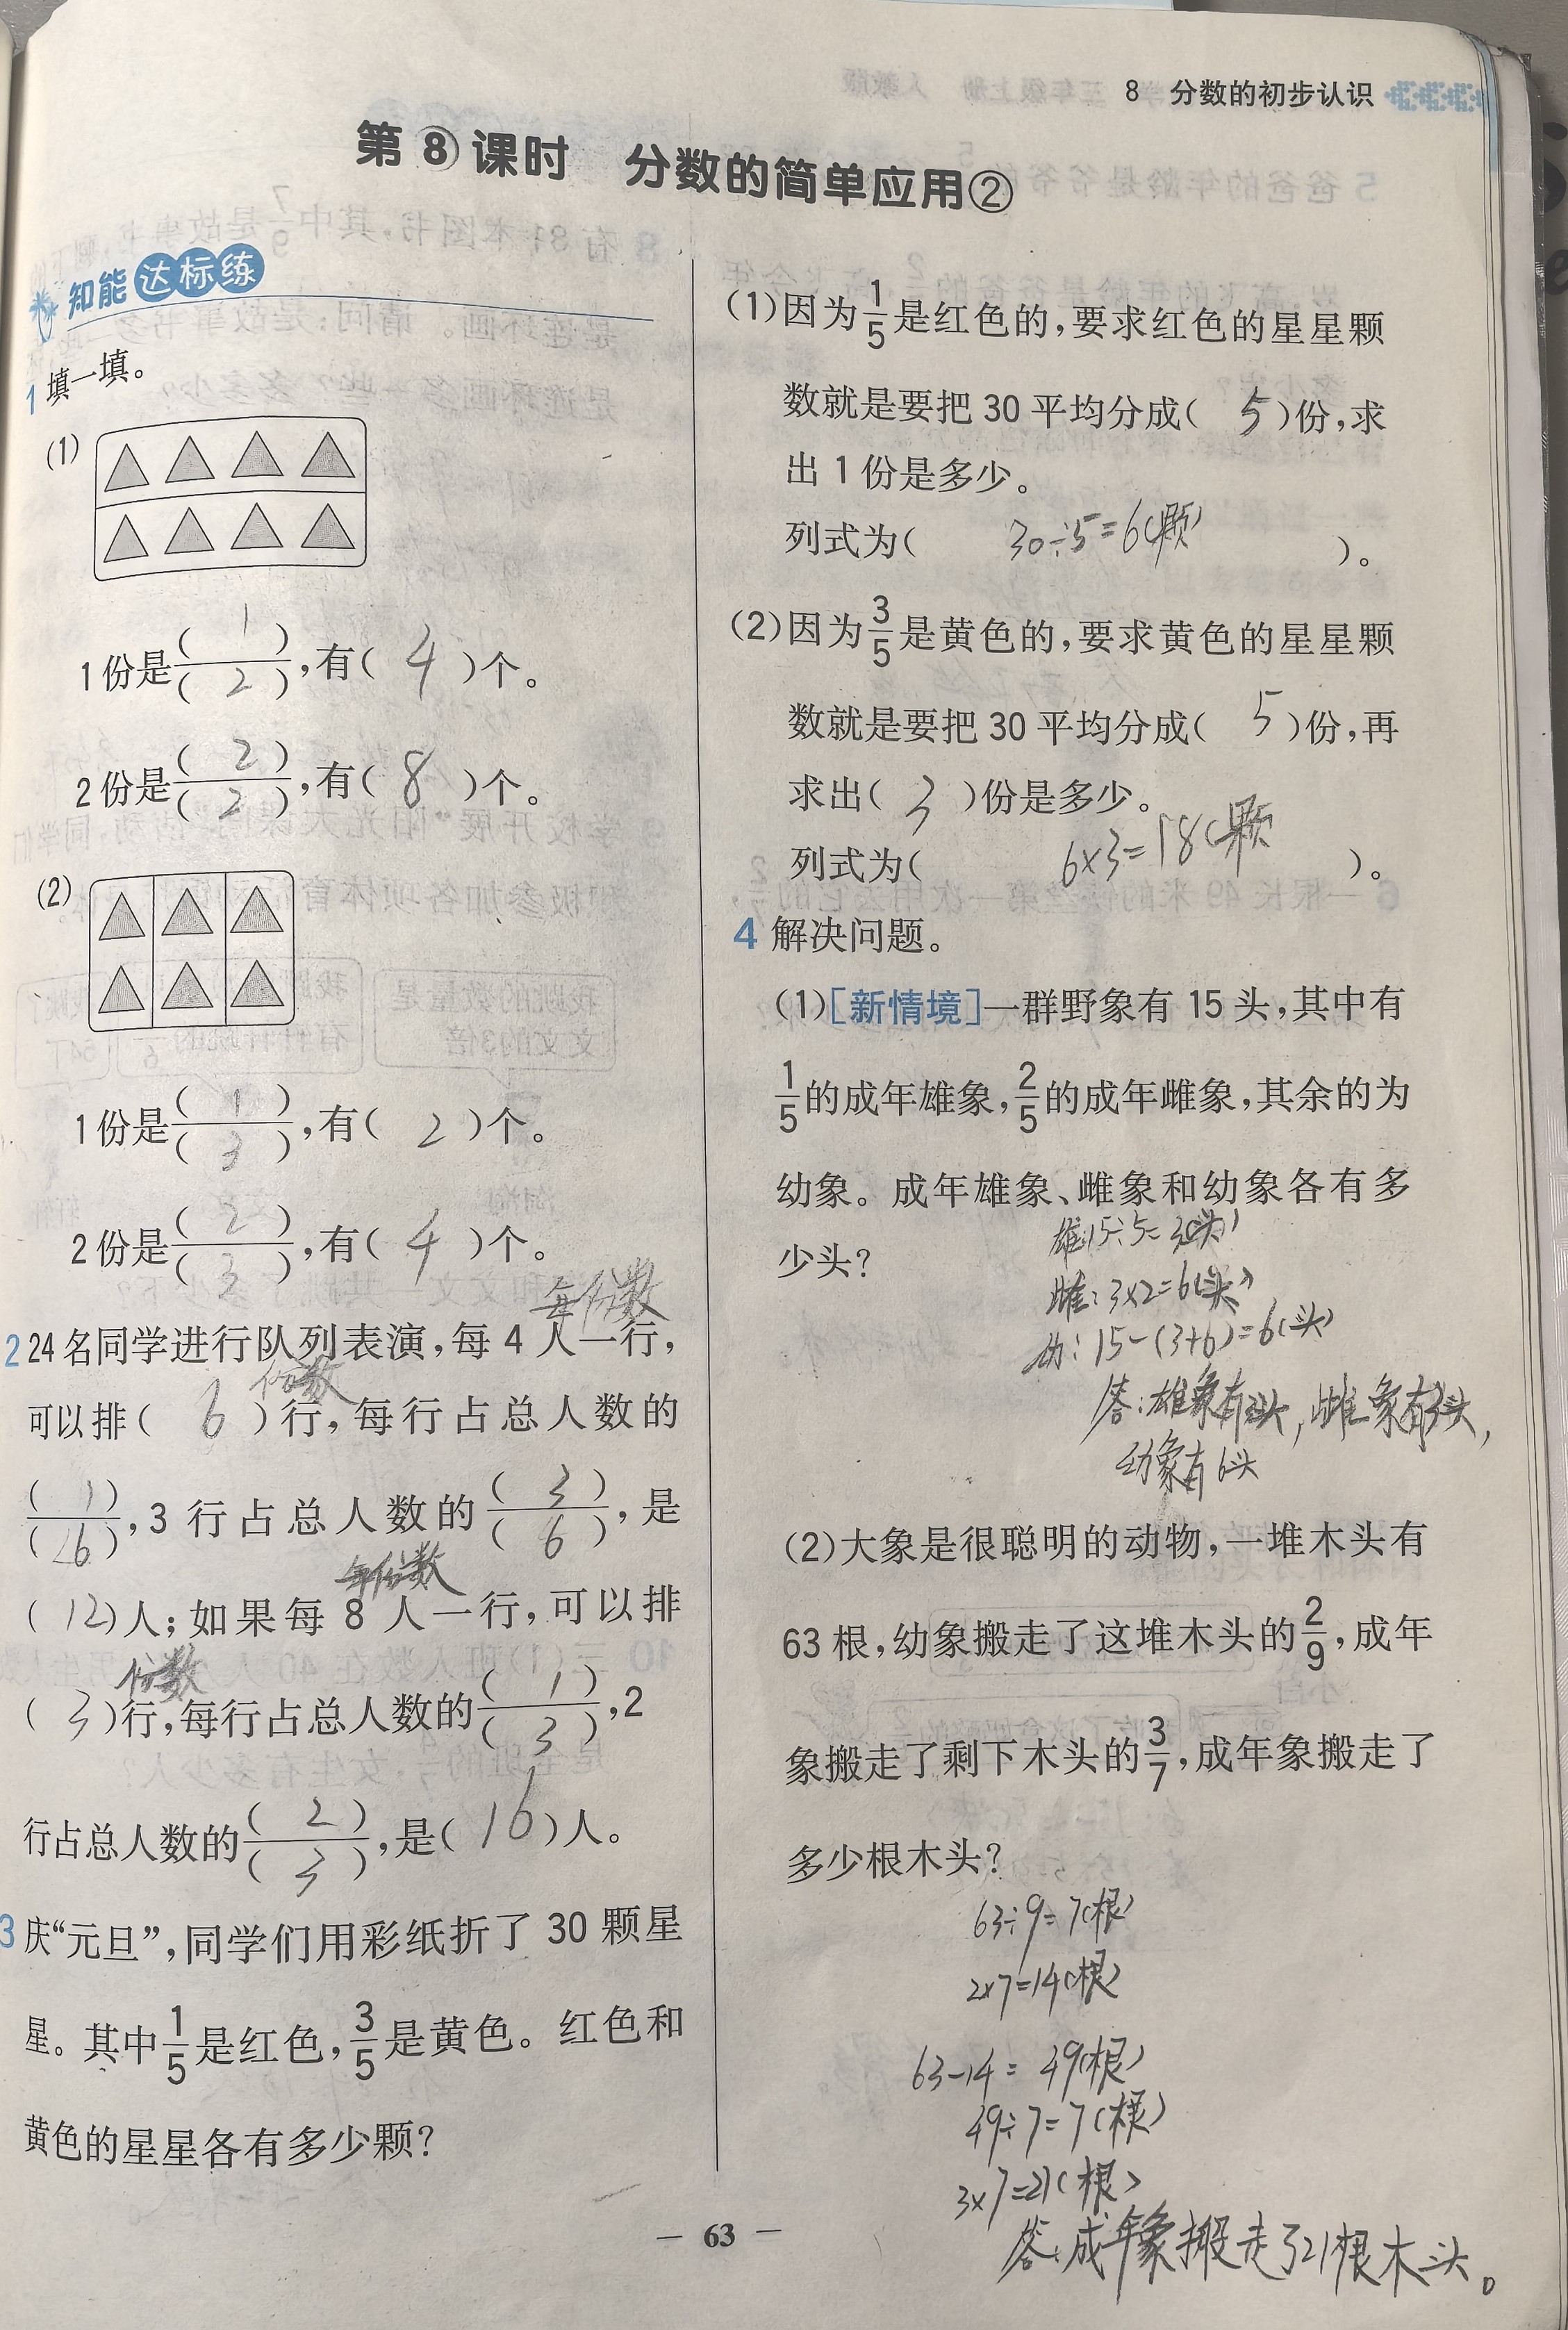 8 分数的初步认识
第⑧课时 分数的简单应用②
知能达标练
1 填一填。
(1)
1份是(1)/(2),有(4)个。
2份是(2)/(2),有(8)个。
(2)
1份是(1)/(3),有(2)个。
2份是(2)/(3),有(4)个。
每份数
2 24名同学进行队列表演,每4人一行,
份数
可以排(6)行,每行占总人数的
(1)/(6),3行占总人数的(3)/(6),是
每份数
(12)人;如果每8人一行,可以排
份数
(3)行,每行占总人数的(1)/(3),2
行占总人数的(2)/(3),是(16)人。
3 庆“元旦”,同学们用彩纸折了30颗星
星。其中1/5是红色,3/5是黄色。红色和
黄色的星星各有多少颗?
(1)因为1/5是红色的,要求红色的星星颗
数就是要把30平均分成(5)份,求
出1份是多少。
列式为(30÷5=6(颗))。
(2)因为3/5是黄色的,要求黄色的星星颗
数就是要把30平均分成(5)份,再
求出(3)份是多少。
列式为(6×3=18(颗)。
4 解决问题。
(1)[新情境]一群野象有15头,其中有
1/5的成年雄象,2/5的成年雌象,其余的为
幼象。成年雄象、雌象和幼象各有多
少头?
雄:15÷5=3(头)
雌:3×2=6(头)
幼:15-(3+6)=6(头)
答:雄象有3头,雌象有3头,
幼象有6头
(2)大象是很聪明的动物,一堆木头有
63根,幼象搬走了这堆木头的2/9,成年
象搬走了剩下木头的3/7,成年象搬走了
多少根木头?
63÷9=7(根)
2×7=14(根)
63-14=49(根)
49÷7=7(根)
3×7=21(根)
答:成年象搬走了21根木头。
— 63 —